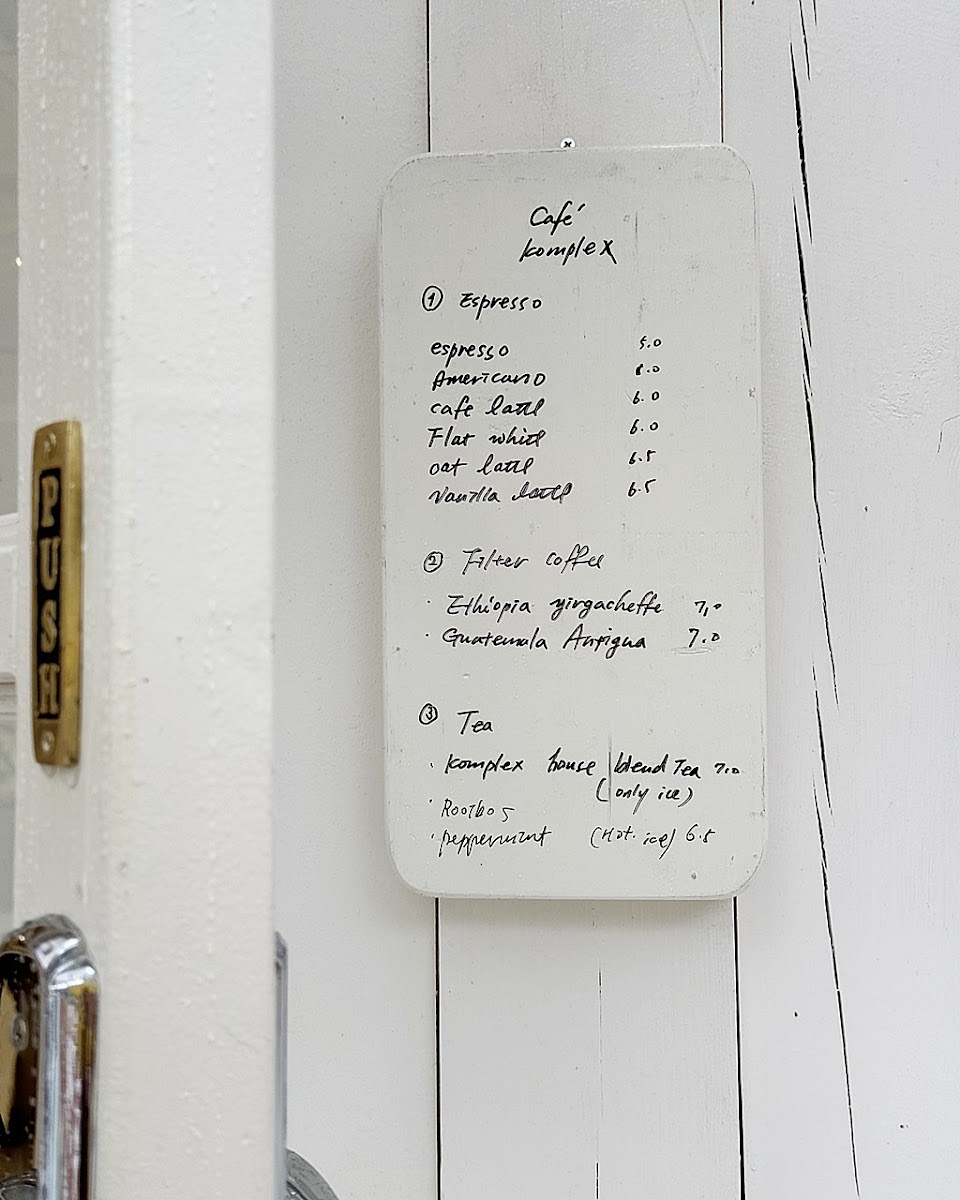 PUSH
Café
komplex
① Espresso
espresso 5.0
Americano 5.0
cafe latte 6.0
Flat white 6.0
oat latte 6.5
Vanilla latte 6.5
② Filter coffee
· Ethiopia yirgacheffe 7,0
· Guatemala Antigua 7.0
③ Tea
· komplex house blend Tea 7.0
(only ice)
· Rooibos
· peppermint (Hot. ice) 6.5